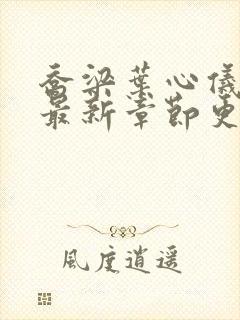 喬梁葉心儀
最新章節更
風度逍遥